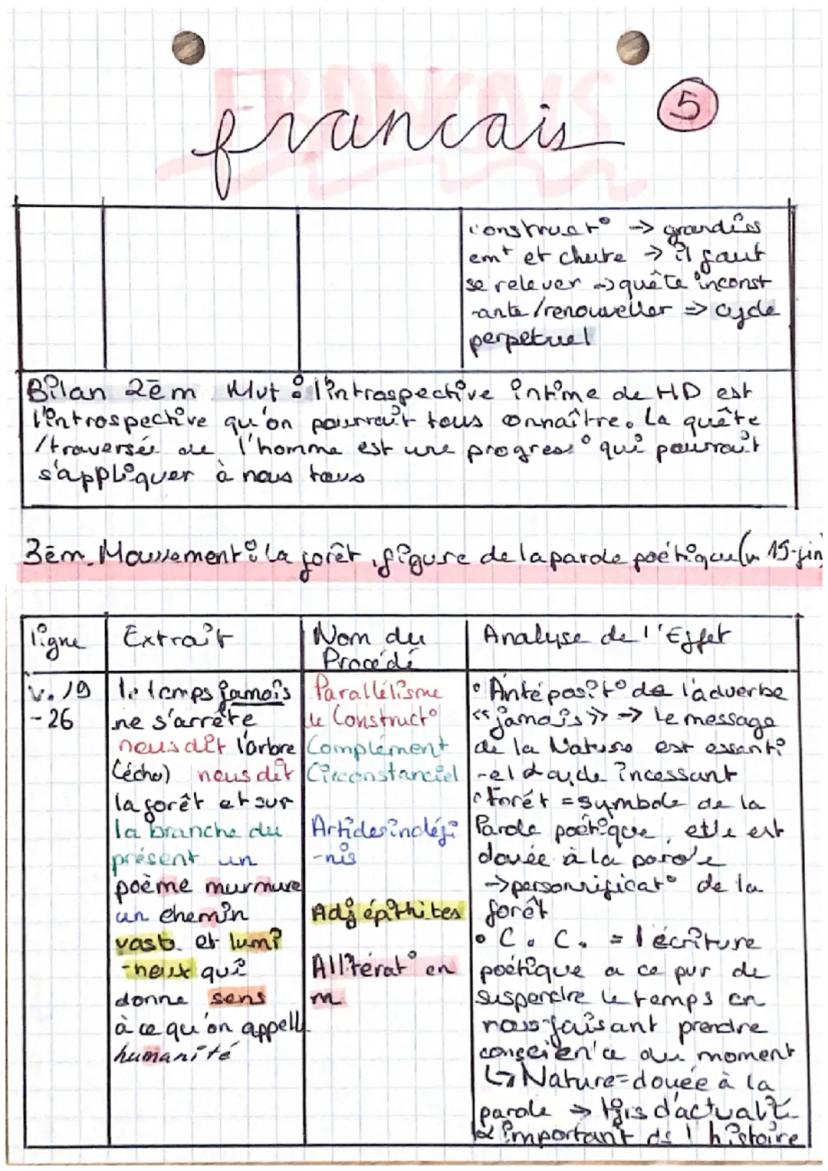 FRANCAIS
francais
5
construct° -> grandiss
emt et chute -> il faut
se relever -> quête inconst
-ante/renouveller => cycle
perpetuel
Bilan 2èm Mvt : l'introspective intime de HD est
l'introspective qu'on pourrait tous onnaître. La quête
/traversée de l'homme est une progress° qui pourrait
s'appliquer à nous tous
3èm. Mouvement : la forêt, figure de la parole poétique (v 15-fin
ligne
Extrait
Nom du
Procédé
Analyse de l'Effet
v. 19
-26
le temps jamais
ne s'arrête
nous dit l'arbre
(écho) nous dit
la forêt et sur
la branche du
présent un
poème murmure
un chemin
vast. et lumi
-neux qui
donne sens
à ce qu'on appell
humanité
Parallélisme
de Construct°
Complément
Circonstanciel
Articles indéfi
-nis
Adj épithètes
Allitérat° en
m
° Antéposit° de l'adverbe
«jamais» -> le message
de la Nature est essenti
-el incessant
° forêt = symbole de la
Parole poétique, elle est
douée à la parole
-> personnificat° de la
forêt
• C. C. = l'écriture
poétique a ce pvr de
suspendre le temps en
nous faisant prendre
conscien'ce du moment
↳ Nature = douée à la
parole -> tjrs d'actualit
& important ds l'histoire